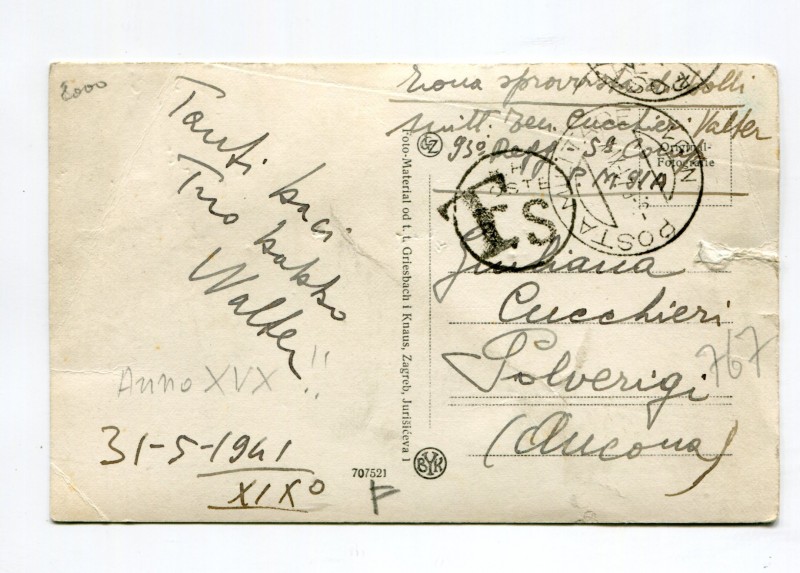 2000
Tanti baci
Tuo babbo
Walter
!!
Anno XVX
31-5-1941
XIXº
707521
F
Foto-Material od t. t. Griesbach i Knaus, Zagreb, Jurišićeva 1
BYK
Zona sprovvista di bolli
Mitt. Ten. Cucchieri Valter
93º Regg. 5ª Co
P. M. 91A
Original-
Fotografie
POSTA MILITARE N
T.S
POSTE
Giuliana
Cucchieri
Polverigi
(Ancona)
767